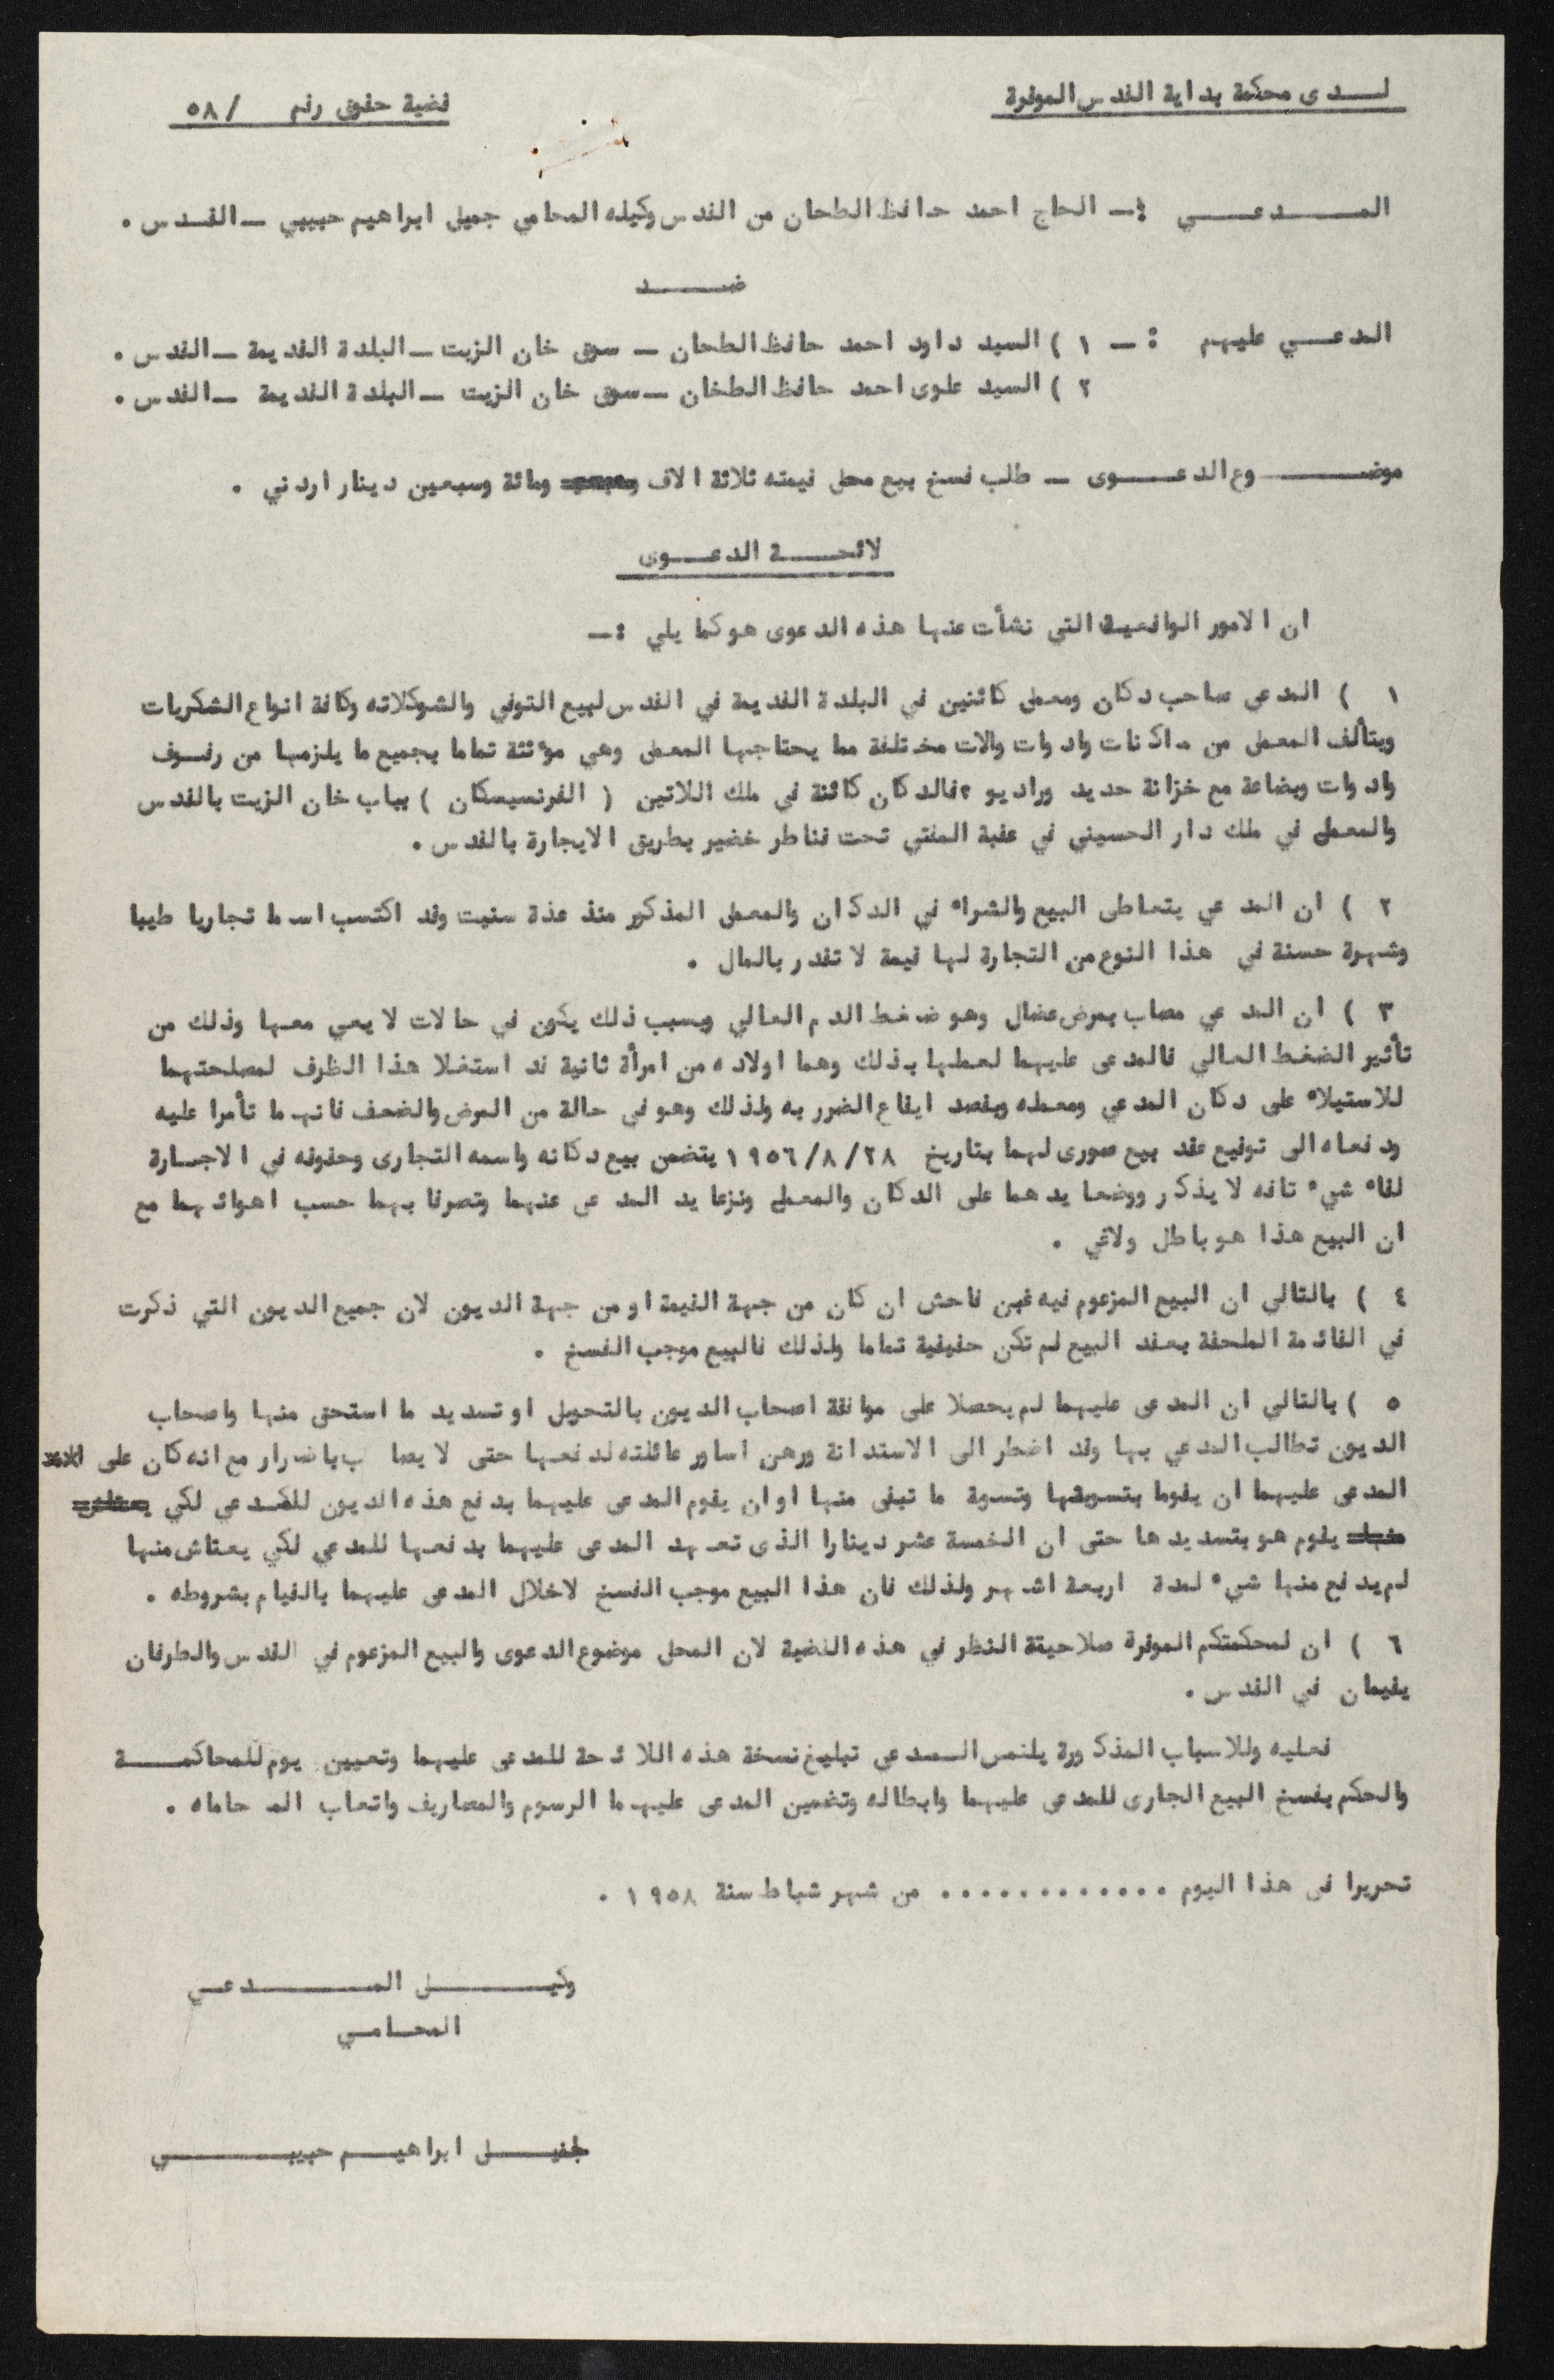 لدى محكمة بداية القدس الموقرة
قضية حقوق رقم / ٥٨
المدعي :- الحاج احمد حافظ الطحان من القدس وكيله المحامي جميل ابراهيم حبيبي - القدس .
ضد
المدعي عليهم :- ١ ) السيد داود احمد حافظ الطحان - سوق خان الزيت - البلدة القديمة - القدس .
٢ ) السيد علوى احمد حافظ الطحان - سوق خان الزيت - البلدة القديمة - القدس .
موضوع الدعوى - طلب فسخ بيع محل قيمته ثلاثة الاف ومائة وسبعين دينار اردني .
لائحة الدعوى
ان الامور الواقعية التي نشأت عنها هذه الدعوى هو كما يلي :-
١ ) المدعي صاحب دكان ومعمل كائنين في البلدة القديمة في القدس لبيع التوفي والشوكلاته وكافة انواع السكريات
ويتألف المعمل من ماكنات وادوات والات مختلفة مما يحتاجها المعمل وهي مؤثثة تماما بجميع ما يلزمها من رفوف
وادوات وبضاعة مع خزانة حديد وراديو ٢ فالدكان كائنة في ملك اللاتين ( الفرنسيسكان ) بباب خان الزيت بالقدس
والمعمل في ملك دار الحسيني في عقبة المفتي تحت قناطر خضير بطريق الايجارة بالقدس .
٢ ) ان المدعي يتعاطى البيع والشراء في الدكان والمعمل المذكور منذ عدة سنيت وقد اكتسب اسما تجاريا طيبا
وشهرة حسنة في هذا النوع من التجارة لها قيمة لا تقدر بالمال .
٣ ) ان المدعي مصاب بمرض عضال وهو ضغط الدم العالي وبسبب ذلك يكون في حالات لا يعي معها وذلك من
تأثير الضغط العالي فالمدعى عليهما لعملها بذلك وهما اولاده من امرأة ثانية قد استغلا هذا الظرف لمصلحتهما
للاستيلاء على دكان المدعي ومعمله وبقصد ايقاع الضرر به ولذلك وهو في حالة من المرض والضعف فانهما تأمرا عليه
ودفعاه الى توقيع عقد بيع صورى لهما بتاريخ ٢٨/ ٨/ ١٩٥٦ يتضمن بيع دكانه واسمه التجارى وحقوقه في الاجارة
لقاء شيء تافه لا يذكر ووضعا يدهما على الدكان والمعمل ونزعا يد المدعى عنهما وتصرفا بهما حسب اهوائهما مع
ان البيع هذا هو باطل ولاغي .
٤ ) بالتالي ان البيع المزعوم فيه غبن فاحش ان كان من جهة القيمة او من جهة الديون لان جميع الديون التي ذكرت
في القائمة الملحقة بعقد البيع لم تكن حقيقية تماما ولذلك فالبيع موجب الفسخ .
٥ ) بالتالي ان المدعى عليهما لم يحصلا على موافقة اصحاب الديون بالتحويل او تسديد ما استحق منها واصحاب
الديون تطالب المدعي بها وقد اضطر الى الاستدانة ورهن اساور عائلته لدفعها حتى لا يصاب باضرار مع انه كان على
المدعى عليهما ان يقوما بتسويقها وتسوية ما تبقى منها او ان يقوم المدعى عليهما بدفع هذه الديون للمدعي لكي
يقوم هو بتسديدها حتى ان الخمسة عشر دينارا الذى تعهد المدعى عليهما بدفعها للمدعي لكي يعتاش منها
لم يدفع منها شيء لمدة اربعة اشهر ولذلك فان هذا البيع موجب الفسخ لاخلال المدعى عليهما بالقيام بشروطه .
٦ ) ان لمحكمتكم الموقرة صلاحيتة النظر في هذه القضية لان المحل موضوع الدعوى والبيع المزعوم في القدس والطرفان
يقيمان في القدس .
فعليه وللاسباب المذكورة يلتمس المدعى تبليغ نسخة هذه اللائحة للمدعى عليهما وتعيين يوم للمحاكمة
والحكم بفسخ البيع الجارى للمدعى عليهما وابطاله وتضمين المدعى عليهما الرسوم والمصاريف واتعاب المحاماه .
تحريرا في هذا اليوم ............ من شهر شباط سنة ١٩٥٨ .
وكيل المدعي
المحامي
جميل ابراهيم حبيبي